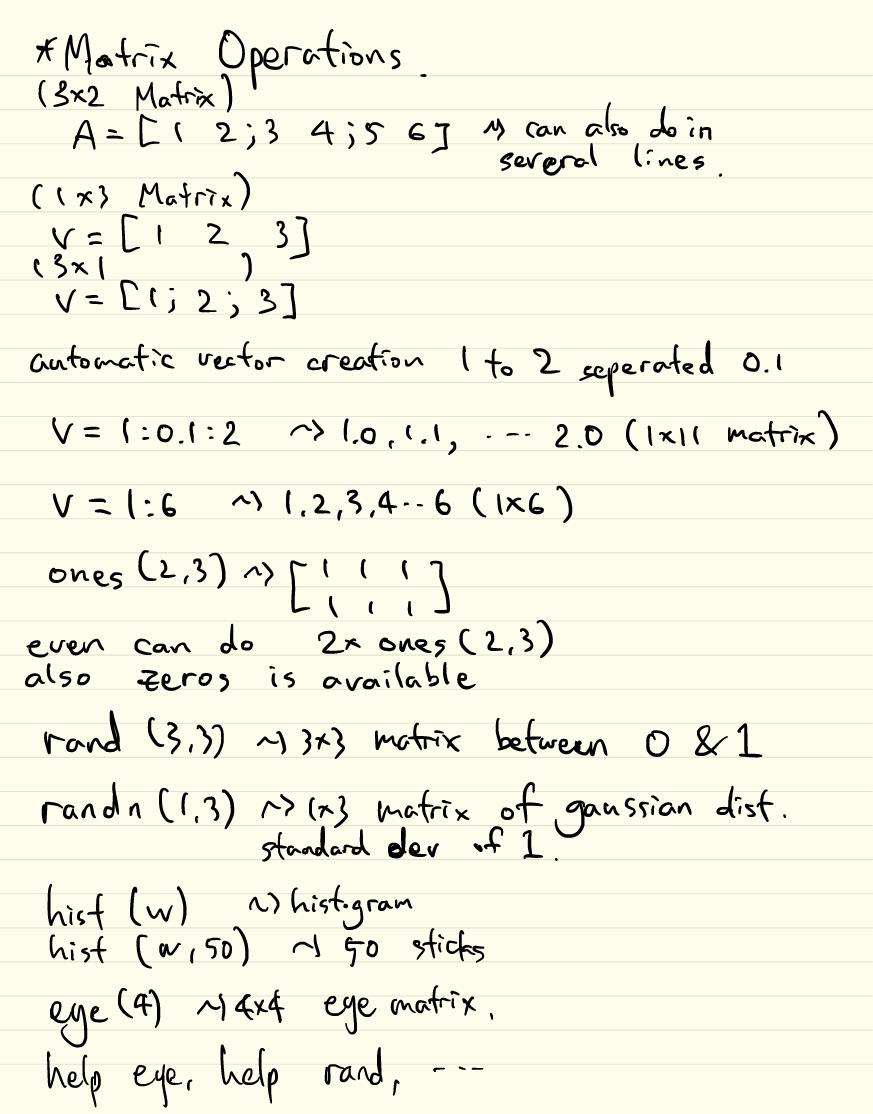 *Matrix Operations.
(3x2 Matrix)
A = [1 2;3 4;5 6] ~> can also do in
several lines.
(1x3 Matrix)
V = [1 2 3]
(3x1 )
V = [1; 2; 3]
automatic vector creation 1 to 2 seperated 0.1
V = 1:0.1:2 ~> 1.0, 1.1, ... 2.0 (1x11 matrix)
V = 1:6 ~> 1,2,3,4..6 (1x6)
ones (2,3) ~> [1 1 1
1 1 1]
even can do 2x ones(2,3)
also zeros is available
rand (3,3) ~> 3x3 matrix between 0 & 1
randn (1,3) ~> 1x3 matrix of gaussian dist.
standard dev of 1.
hist (w) ~> histogram
hist (w,50) ~> 50 sticks
eye (4) ~> 4x4 eye matrix.
help eye, help rand, ---